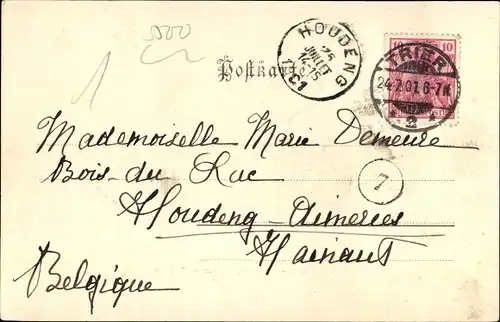 5000
1
HOUDENG
25
JUILLET
14-15
1901
Postkarte
10 10
TRIER
24.7.01.6-7N.
* 2 *
Mademoiselle Marie Demeure
Bois-du Luc
7
Houdeng-Aimeries
Hainaut
Belgique